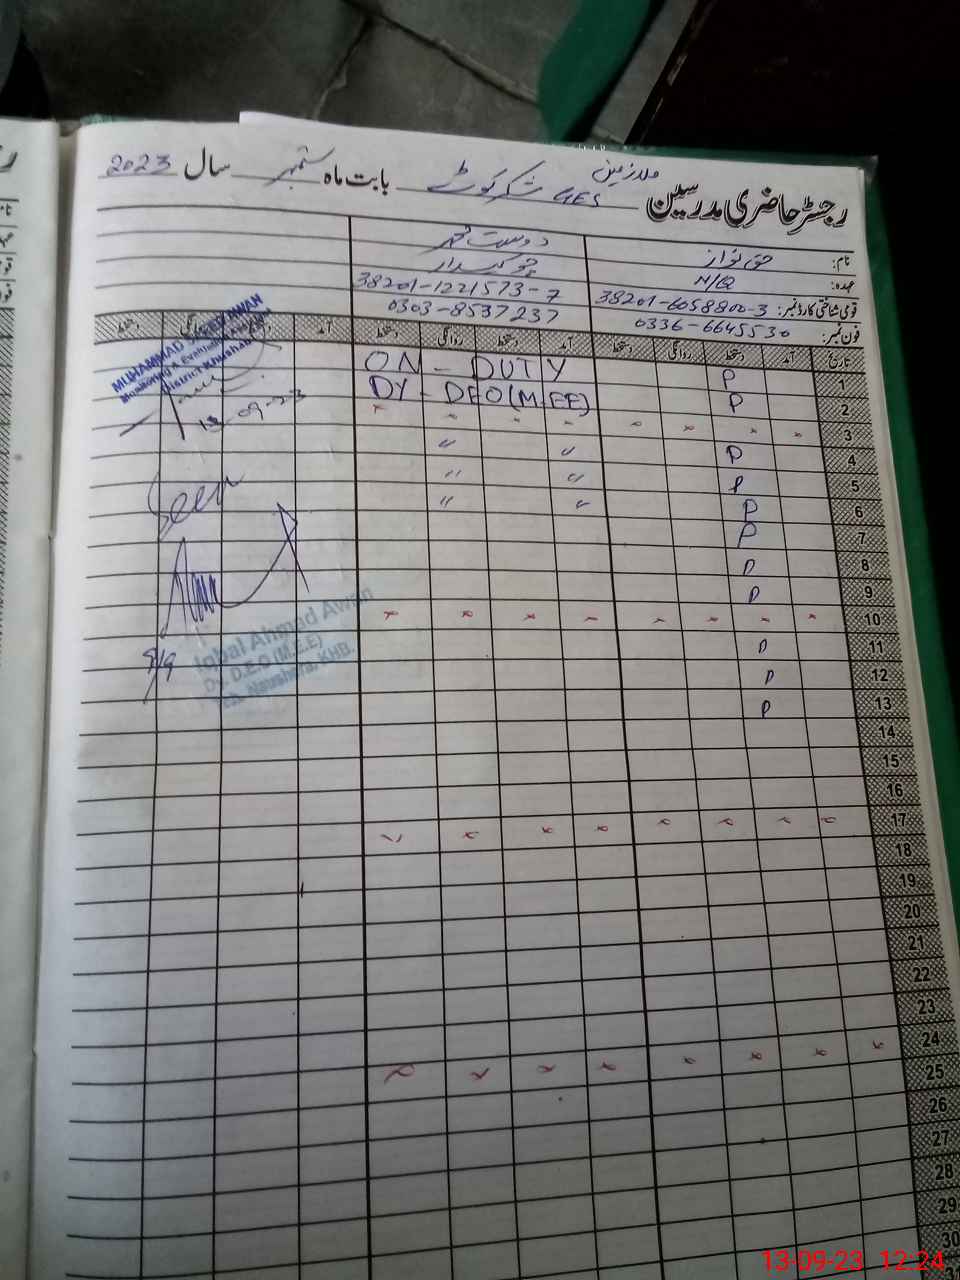 ملازمین
رجسٹر حاضری مدرسین GES شکر کوٹ بابت ماہ ستمبر سال 2023
نام: حق نواز دوست محمد
عہدہ: N/Q چوکیدار
قومی شناختی کارڈ نمبر: 38201-6058800-3 38201-1221573-7
فون نمبر: 0336-6645530 0303-8537237
تاریخ آمد دستخط روانگی دستخط آمد دستخط روانگی دستخط آمد دستخط روانگی دستخط
1 P ON - DUTY
2 P DY - DEO (M.EE)
3 × × × × × × × ×
4 P 〃 〃
5 P 〃 〃
6 P 〃 〃
7 P
8 P
9 P
10 × × × × × × × ×
11 P
12 P
13 P
14
15
16
17 × × × × × × × ×
18
19
20
21
22
23
24 × × × × × × × ×
25
26
27
28
29
30
MUHAMMAD SAEED AWAN
Monitoring & Evaluation
District Khushab
13-09-23
Seen
Iqbal Ahmad Awan
Dy. D.E.O (M.E.E)
Teh. Naushera, KHB.
9/9
13-09-23 12:24